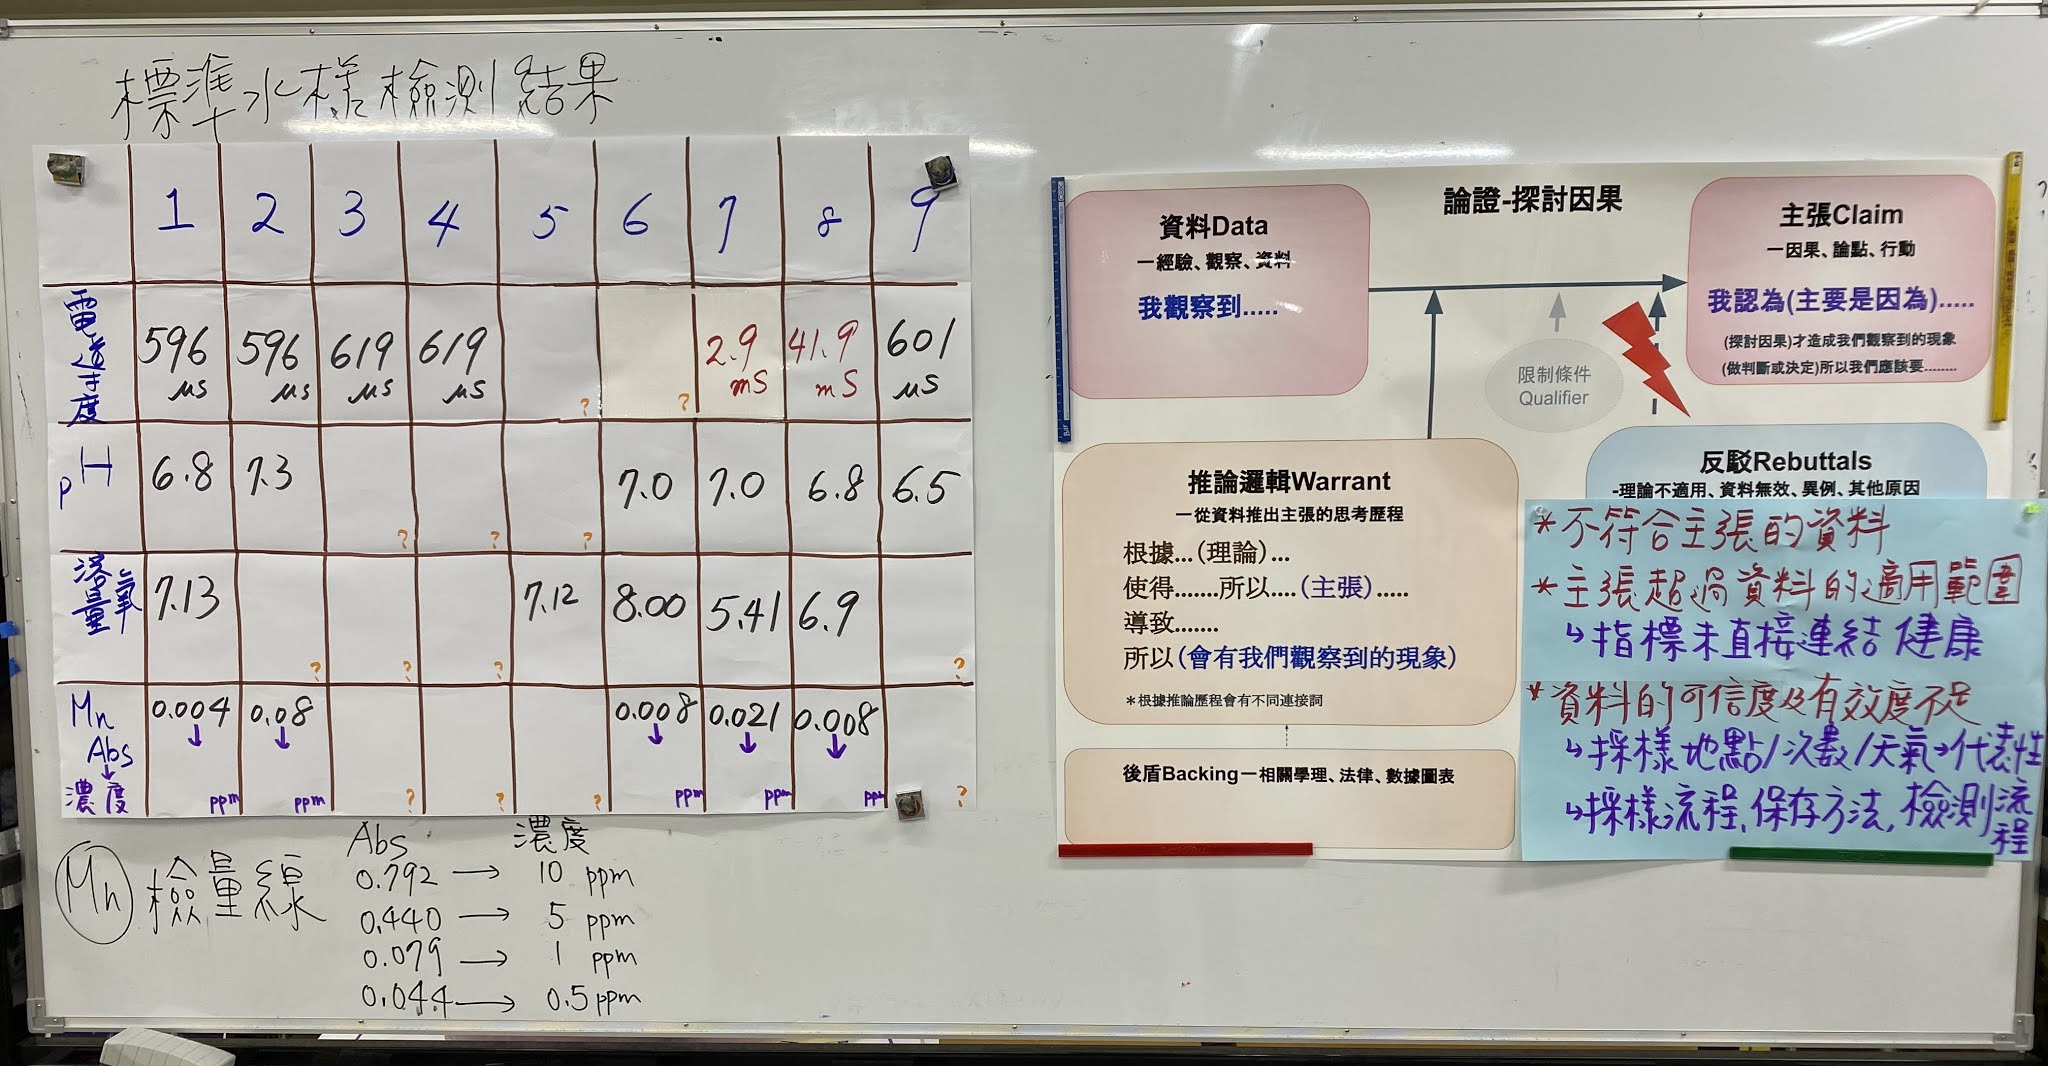 標準水樣檢測結果
1 2 3 4 5 6 7 8 9
電導度 596 μs 596 μs 619 μs 619 μs ? ? 2.9 mS 41.9 mS 601 μs
pH 6.8 7.3 ? ? ? 7.0 7.0 6.8 6.5
溶氧量 7.13 ? ? ? 7.12 8.00 5.41 6.9 ?
Mn Abs ↓ 濃度 0.004 ↓ ppm 0.08 ↓ ppm ? ? ? 0.008 ↓ ppm 0.021 ↓ ppm 0.008 ↓ ppm ?
Mn 檢量線
Abs 濃度
0.792 → 10 ppm
0.440 → 5 ppm
0.079 → 1 ppm
0.044 → 0.5 ppm
論證-探討因果
資料Data
—經驗、觀察、資料
我觀察到.....
主張Claim
—因果、論點、行動
我認為(主要是因為).....
(探討因果)才造成我們觀察到的現象
(做判斷或決定)所以我們應該要........
限制條件
Qualifier
推論邏輯Warrant
—從資料推出主張的思考歷程
根據...(理論)...
使得.......所以....(主張).....
導致.......
所以(會有我們觀察到的現象)
*根據推論歷程會有不同連接詞
後盾Backing—相關學理、法律、數據圖表
反駁Rebuttals
-理論不適用、資料無效、異例、其他原因
*不符合主張的資料
*主張超過資料的適用範圍
↳指標未直接連結健康
*資料的可信度及有效度不足
↳採樣地點/次數/天氣→代表性
↳採樣流程,保存方法,檢測流程